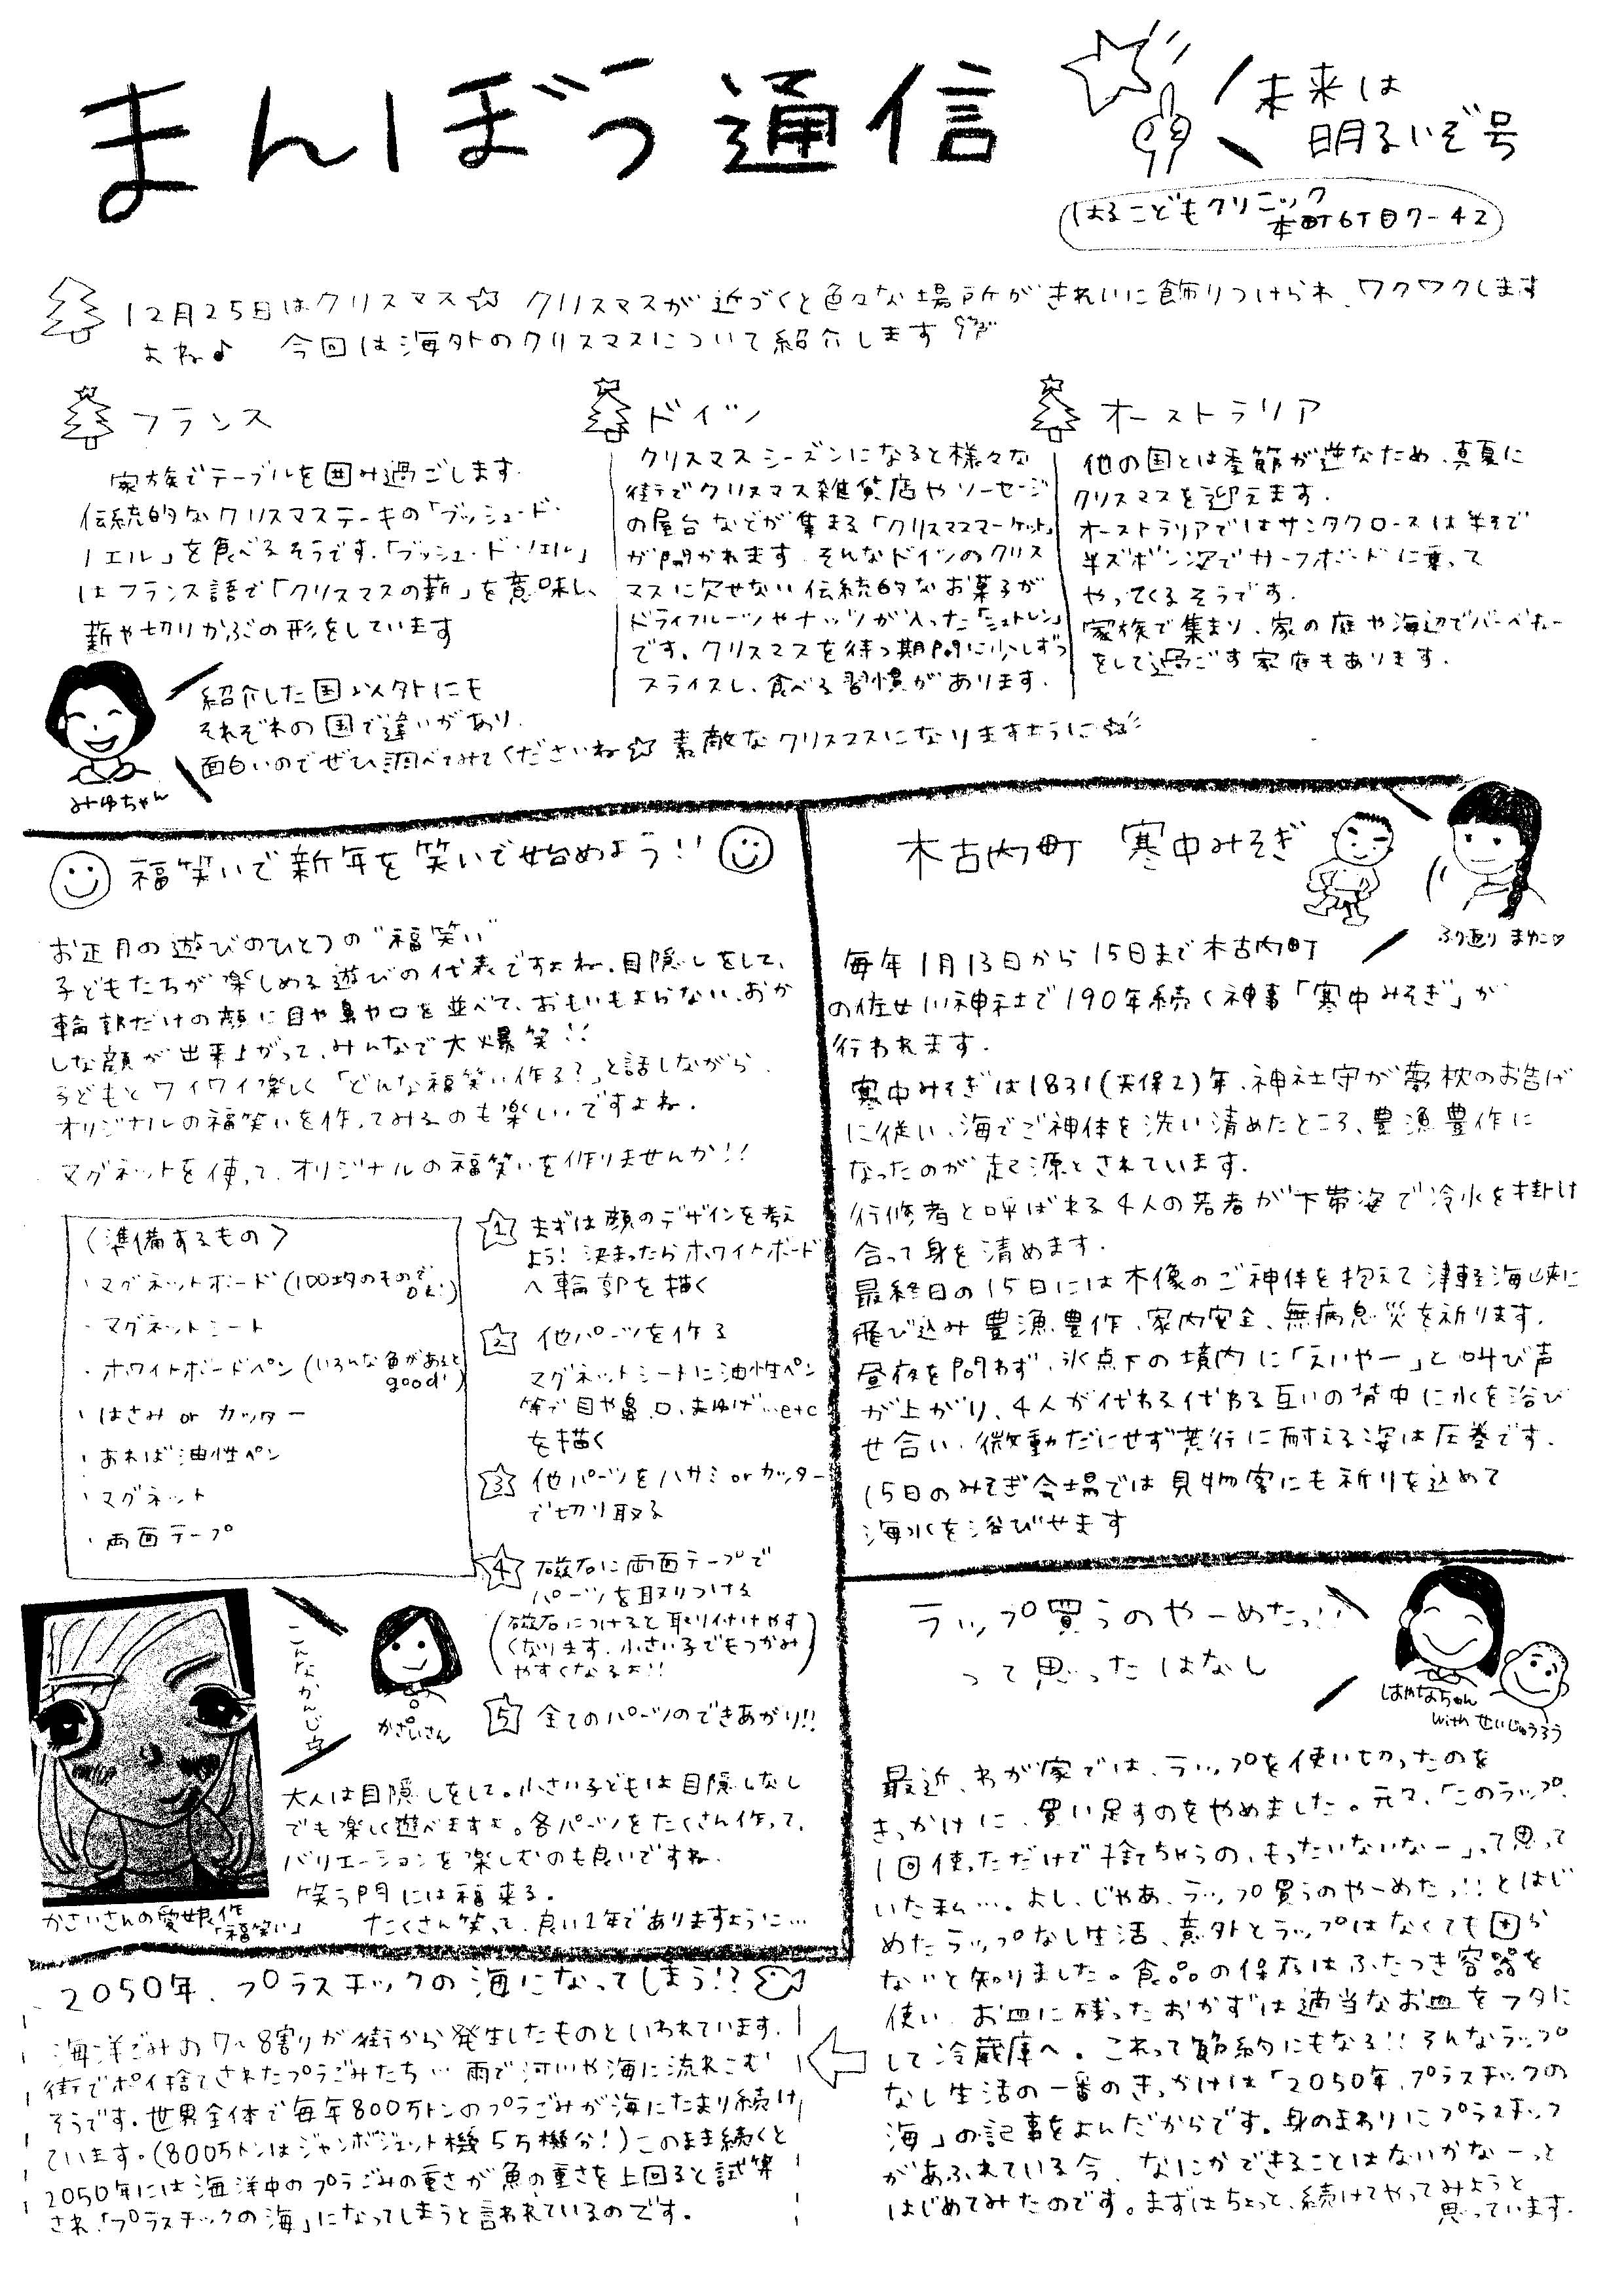 まんぼう通信
未来は
明るいぞ号
はるこどもクリニック
本町6丁目7-42
12月25日はクリスマス☆ クリスマスが近づくと色々な場所がきれいに飾りつけられ、ワクワクします
よね♪ 今回は海外のクリスマスについて紹介します
フランス
家族でテーブルを囲み過ごします.
伝統的なクリスマスケーキの「ブッシュ・ド・
ノエル」を食べるそうです.「ブッシュ・ド・ノエル」
はフランス語で「クリスマスの薪」を意味し、
薪や切りかぶの形をしています
ドイツ
クリスマスシーズンになると様々な
街でクリスマス雑貨店やソーセージ
の屋台などが集まる「クリスマスマーケット」
が開かれます.そんなドイツのクリス
マスに欠せない伝統的なお菓子が
ドライフルーツやナッツが入った「シュトレン」
です。クリスマスを待つ期間に少しずつ
スライスし、食べる習慣があります.
オーストラリア
他の国とは季節が逆なため、真夏に
クリスマスを迎えます.
オーストラリアではサンタクロースは半そで
半ズボン姿でサーフボードに乗って
やってくるそうです.
家族で集まり、家の庭や海辺でバーベキュー
をして過ごす家庭もあります.
紹介した国以外にも
それぞれの国で違いがあり、
面白いのでぜひ調べてみてくださいね☆ 素敵なクリスマスになりますように☆
みゆちゃん
福笑いで新年を笑いで始めよう!!
お正月の遊びのひとつの"福笑い"
子どもたちが楽しめる遊びの代表ですよね.目隠しをして、
輪郭だけの顔に目や鼻や口を並べて、おもいもよらない、おか
しな顔が出来上がって、みんなで大爆笑!!
子どもとワイワイ楽しく「どんな福笑い作る?」と話しながら、
オリジナルの福笑いを作ってみるのも楽しいですよね.
マグネットを使って、オリジナルの福笑いを作りませんか!!
〈準備するもの〉
・マグネットボード(100均のものでOK!)
・マグネットシート
・ホワイトボードペン(いろんな色があるとgood!)
・はさみ or カッター
・あれば油性ペン
・マグネット
・両面テープ
1 まずは顔のデザインを考え
よう! 決まったらホワイトボード
へ輪郭を描く
2 他パーツを作る
マグネットシートに油性ペン
等で目や鼻、口、まゆげ…etc
を描く
3 他パーツをハサミorカッター
で切り取る
4 磁石に両面テープで
パーツを取りつける
(磁石につけると取り付けやす
くなります.小さい子でもつかみ
やすくなるよ!!)
5 全てのパーツのできあがり!!
こんなかんじ☆
かさいさん
大人は目隠しをして。小さい子どもは目隠しなし
でも楽しく遊べますよ。各パーツをたくさん作って、
バリエーションを楽しむのも良いですね.
笑う門には福来る。
たくさん笑って、良い1年でありますように…
かさいさんの愛娘作
「福笑い」
木古内町 寒中みそぎ
ふり返り まゆこ♡
毎年1月13日から15日まで木古内町
の佐女川神社で190年続く神事「寒中みそぎ」が
行われます.
寒中みそぎは1831(天保2)年、神社守が夢枕のお告げ
に従い、海でご神体を洗い清めたところ、豊漁豊作に
なったのが起源とされています.
行修者と呼ばれる4人の若者が下帯姿で冷水を掛け
合って身を清めます.
最終日の15日には木像のご神体を抱えて津軽海峡に
飛び込み豊漁豊作、家内安全、無病息災を祈ります.
昼夜を問わず、氷点下の境内に「えいやー」と叫び声
が上がり、4人が代わる代わる互いの背中に水を浴び
せ合い、微動だにせず荒行に耐える姿は圧巻です.
15日のみそぎ会場では見物客にも祈りを込めて
海水を浴びせます
ラップ買うのやーめたっ!!
って思ったはなし
はやなちゃん
with せいじゅうろう
最近、わが家では、ラップを使い切ったのを
きっかけに、買い足すのをやめました。元々、「このラップ、
1回使っただけで捨てちゃうの、もったいないなー」って思って
いた私…。よし、じゃあ、ラップ買うのやーめたっ!!とはじ
めたラップなし生活、意外とラップはなくても困ら
ないと知りました。食品の保存はふたつき容器を
使い、お皿に残ったおかずは適当なお皿をフタに
して冷蔵庫へ。これって節約にもなる!!そんなラップ
なし生活の一番のきっかけは「2050年、プラスチックの
海」の記事をよんだからです。身のまわりにプラスチック
があふれている今、なにかできることはないかなーっと
はじめてみたのです。まずはちょっと、続けてやってみようと
思っています.
2050年、プラスチックの海になってしまう!?
海洋ごみの7~8割りが街から発生したものといわれています.
街でポイ捨てされたプラごみたち… 雨で河川や海に流れこむ
そうです.世界全体で毎年800万トンのプラごみが海にたまり続け
ています。(800万トンはジャンボジェット機5万機分!)このまま続くと
2050年には海洋中のプラごみの重さが魚の重さを上回ると試算
され、「プラスチックの海」になってしまうと言われているのです。